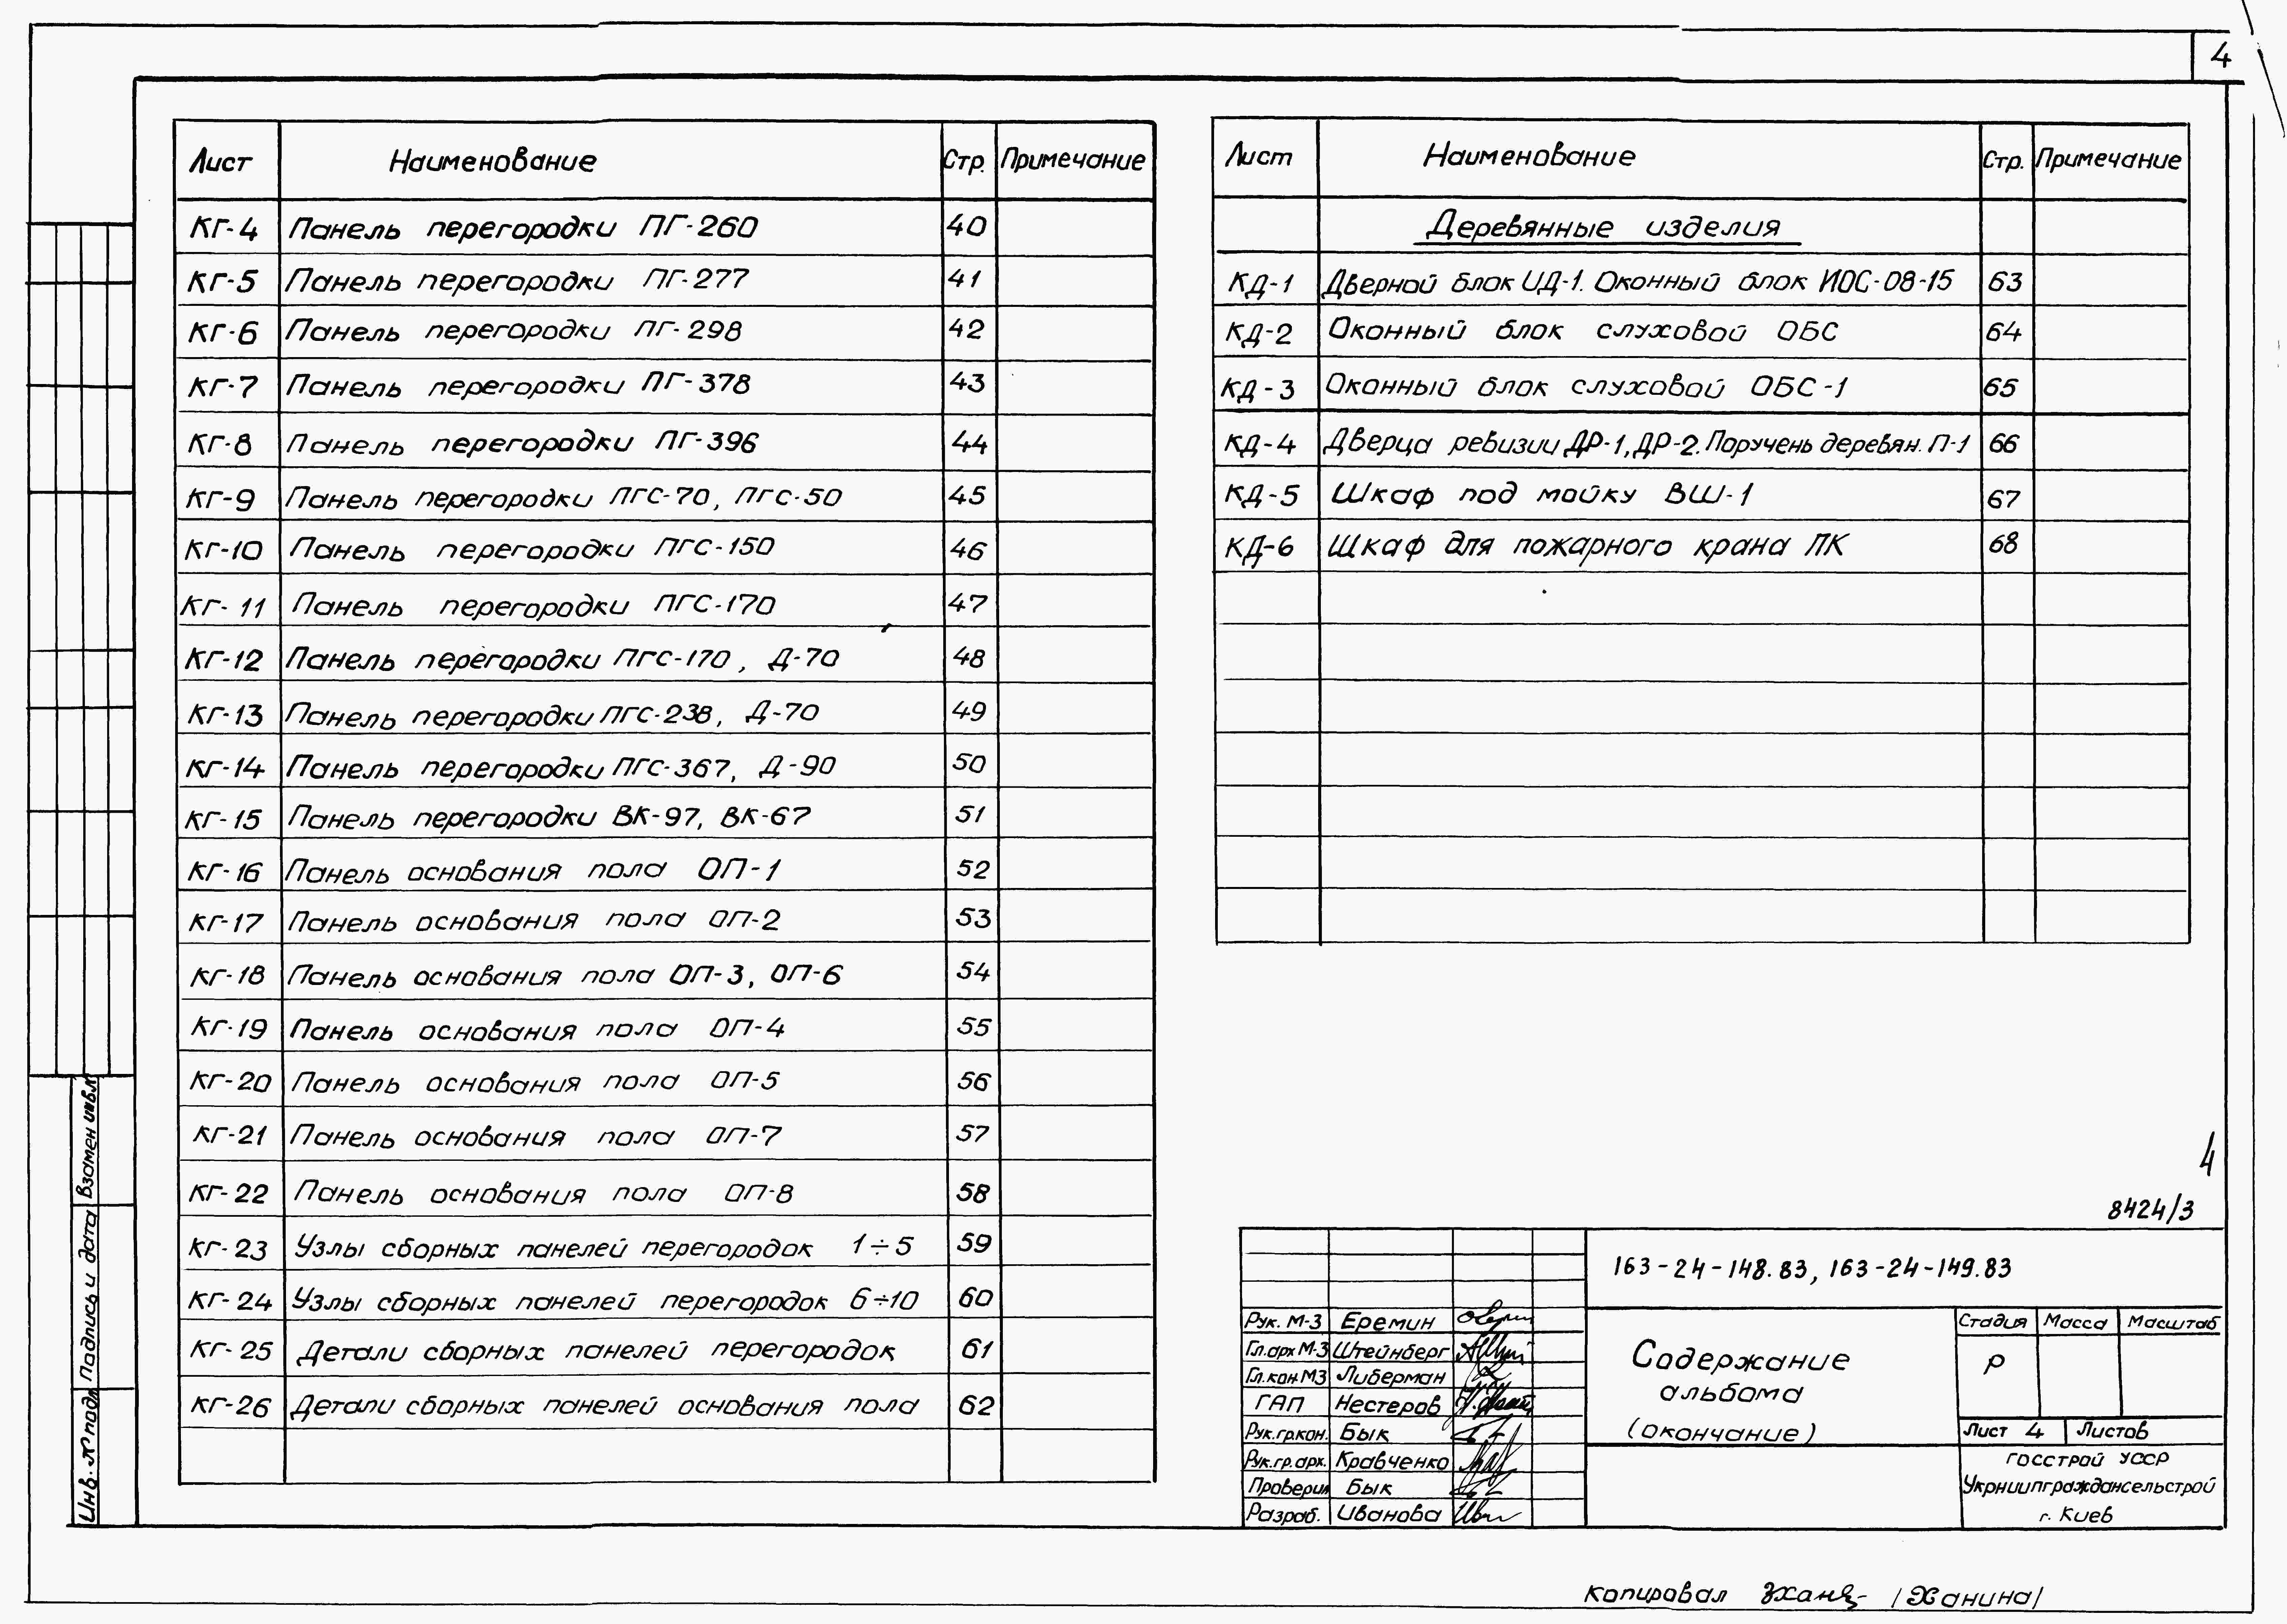 4
Лист Наименование Стр. Примечание
КГ-4 Панель перегородки ПГ-260 40
КГ-5 Панель перегородки ПГ-277 41
КГ-6 Панель перегородки ПГ-298 42
КГ-7 Панель перегородки ПГ-378 43
КГ-8 Панель перегородки ПГ-396 44
КГ-9 Панель перегородки ПГС-70, ПГС-50 45
КГ-10 Панель перегородки ПГС-150 46
КГ-11 Панель перегородки ПГС-170 47
КГ-12 Панель перегородки ПГС-170, Д-70 48
КГ-13 Панель перегородки ПГС-238, Д-70 49
КГ-14 Панель перегородки ПГС-367, Д-90 50
КГ-15 Панель перегородки ВК-97, ВК-67 51
КГ-16 Панель основания пола ОП-1 52
КГ-17 Панель основания пола ОП-2 53
КГ-18 Панель основания пола ОП-3, ОП-6 54
КГ-19 Панель основания пола ОП-4 55
КГ-20 Панель основания пола ОП-5 56
КГ-21 Панель основания пола ОП-7 57
КГ-22 Панель основания пола ОП-8 58
КГ-23 Узлы сборных панелей перегородок 1÷5 59
КГ-24 Узлы сборных панелей перегородок 6÷10 60
КГ-25 Детали сборных панелей перегородок 61
КГ-26 Детали сборных панелей основания пола 62
Лист Наименование Стр. Примечание
Деревянные изделия
КД-1 Дверной блок ИД-1. Оконный блок ИОС-08-15 63
КД-2 Оконный блок слуховой ОБС 64
КД-3 Оконный блок слуховой ОБС-1 65
КД-4 Дверца ревизии ДР-1, ДР-2. Поручень деревян. П-1 66
КД-5 Шкаф под мойку ВШ-1 67
КД-6 Шкаф для пожарного крана ПК 68
4
8424/3
163-24-148.83, 163-24-149.83
Рук. М-3 Еремин
Гл.арх М-3 Штейнберг
Гл.кон.М3 Либерман
ГАП Нестеров
Рук.гр.кон. Бык
Рук.гр.арх. Кравченко
Проверил Бык
Разраб. Иванова
Содержание
альбома
(окончание)
Стадия Масса Масштаб
Р
Лист 4 Листов
Госстрой УССР
Укрниипграждансельстрой
г. Киев
Взамен инв.№
Подпись и дата
Инв. № подл
Копировал /Ханина/